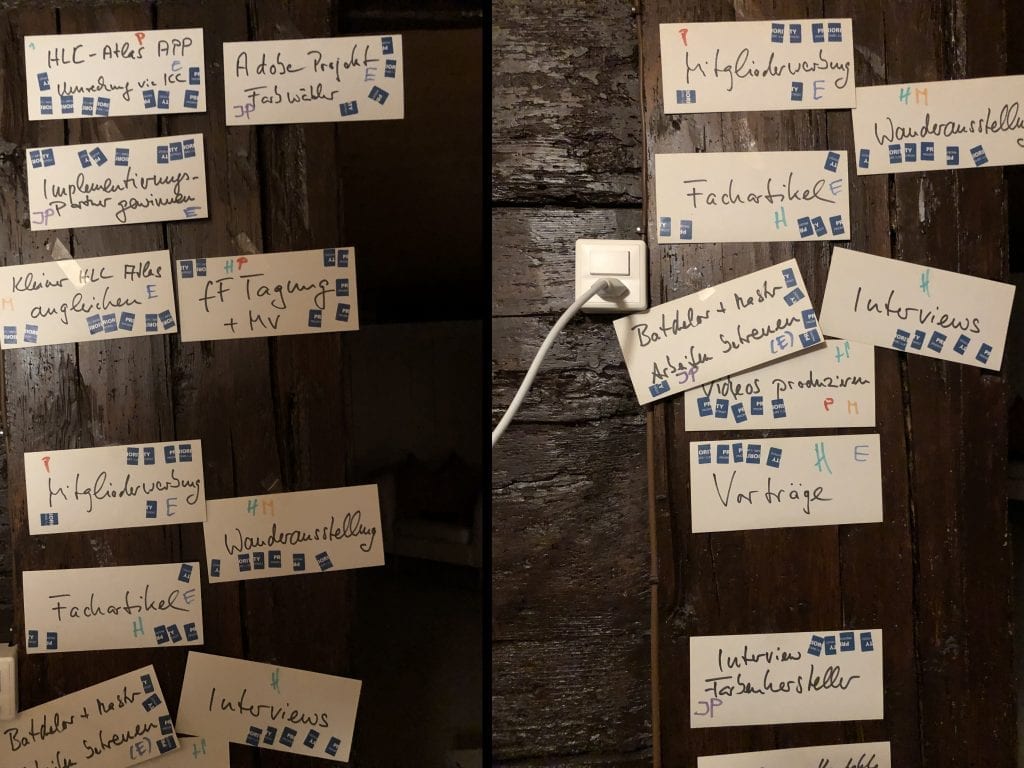 HLC-Atlas APP
P
E
Umredung via ICC
Adobe Projekt
E
JP Farbwähler
Implementierungs-
JP Partner gewinnen E
Kleiner HLC Atlas
M angleichen E
H P
fF Tagung
+ MV
P
Mitgliederwerbung
E
H M
Wanderausstellung
Fachartikel E
H
H
Interviews
Batchelor + Mastr
Arbeiten betreuen
(E)
H P
P
Mitgliederwerbung
E
H M
Wanderausstellung
Fachartikel E
H
Batchelor + Mastr
Arbeiten betreuen
JP (E)
H
Interviews
H P
Videos produzieren
P M
H E
Vorträge
Interview
Farbenhersteller
JP